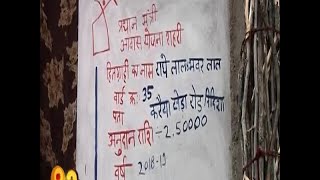 प्रधान मंत्री
आवास योजना शहरी
हितग्राही का नाम राधे लाल भवर लाल
वार्ड क्र. 35
पता करैया खेड़ा रोड विदिशा
अनुदान राशि - 2.50000
वर्ष 2018-19